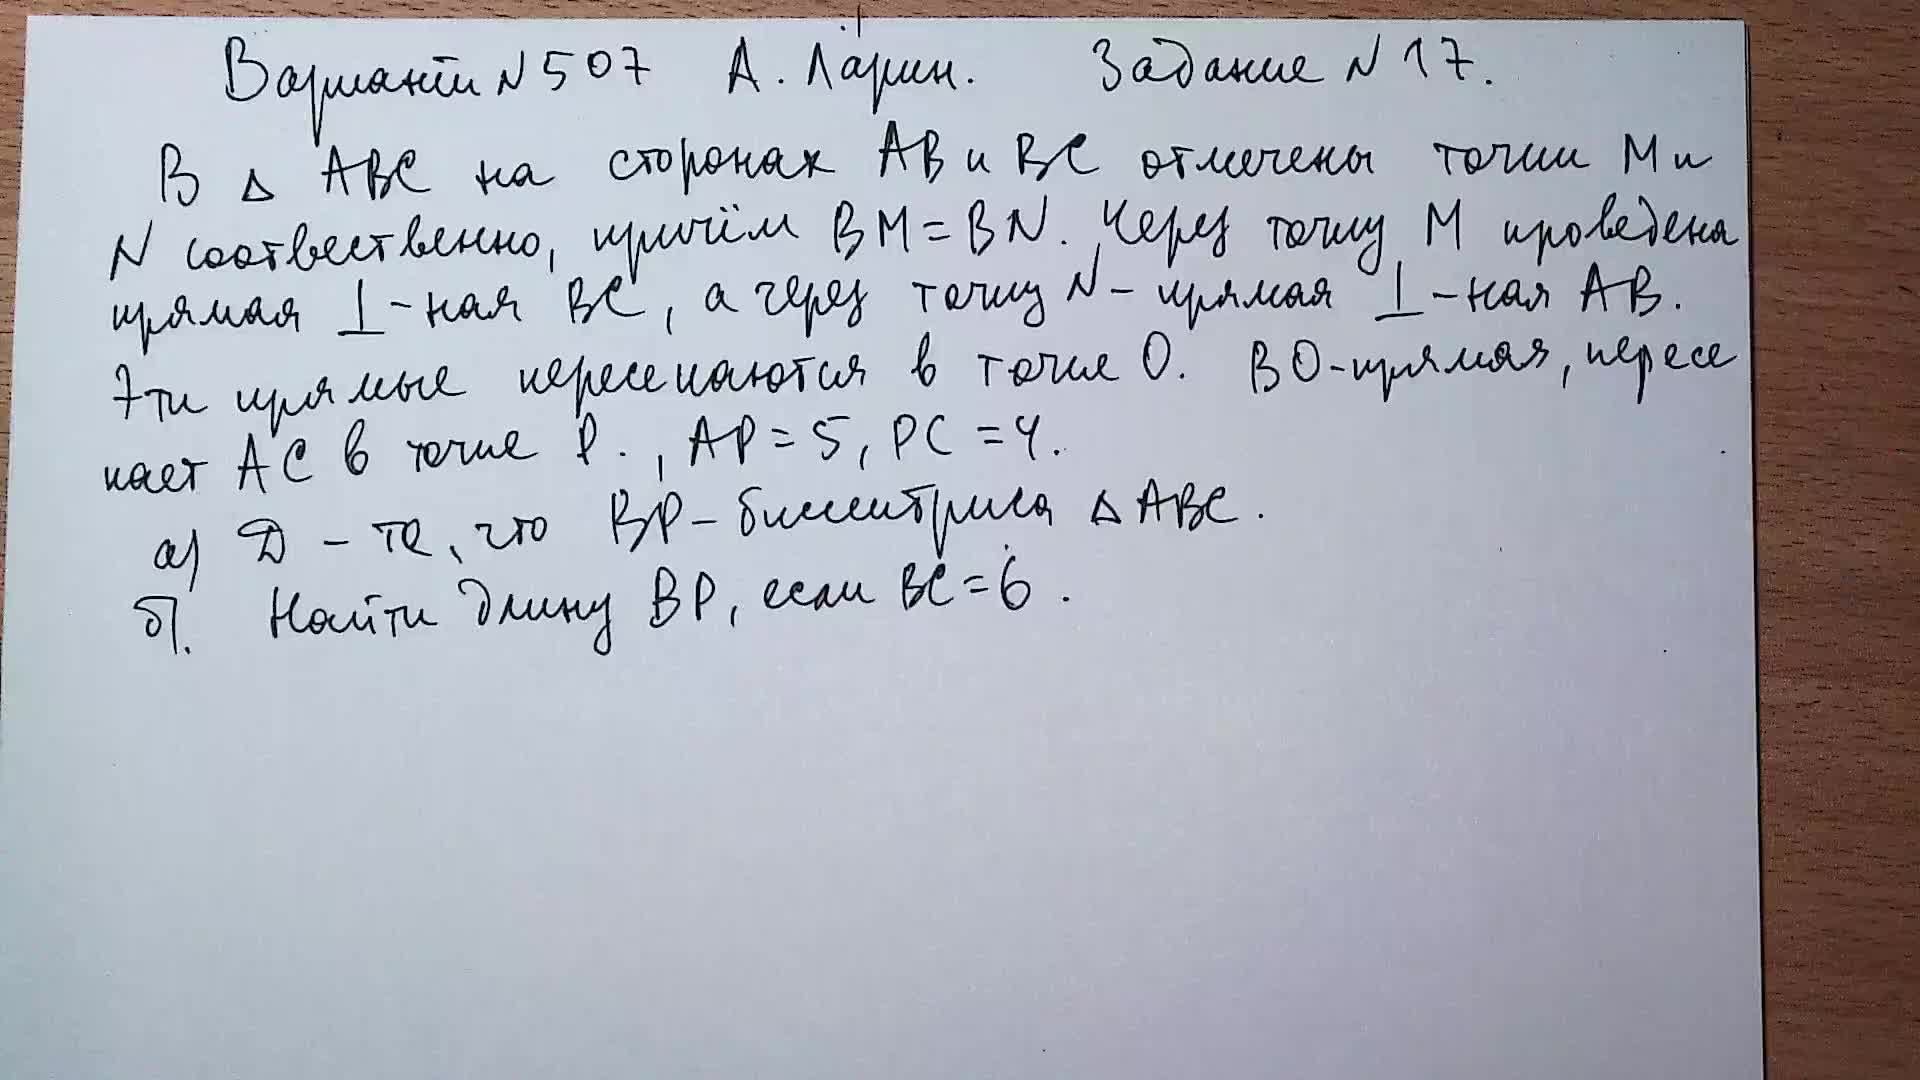 Вариант №507 А. Ларин. Задание №17.
В △ ABC на сторонах AB и BC отмечены точки M и
N соотвественно, причём BM = BN. Через точку M проведена
прямая ⊥-ная BC, а через точку N – прямая ⊥-ная AB.
Эти прямые пересекаются в точке O. BO-прямая, пересе
кает AC в точке P., AP = 5, PC = 4.
а) Д-те, что BP – биссектриса △ ABC.
б). Найти длину BP, если BC = 6.